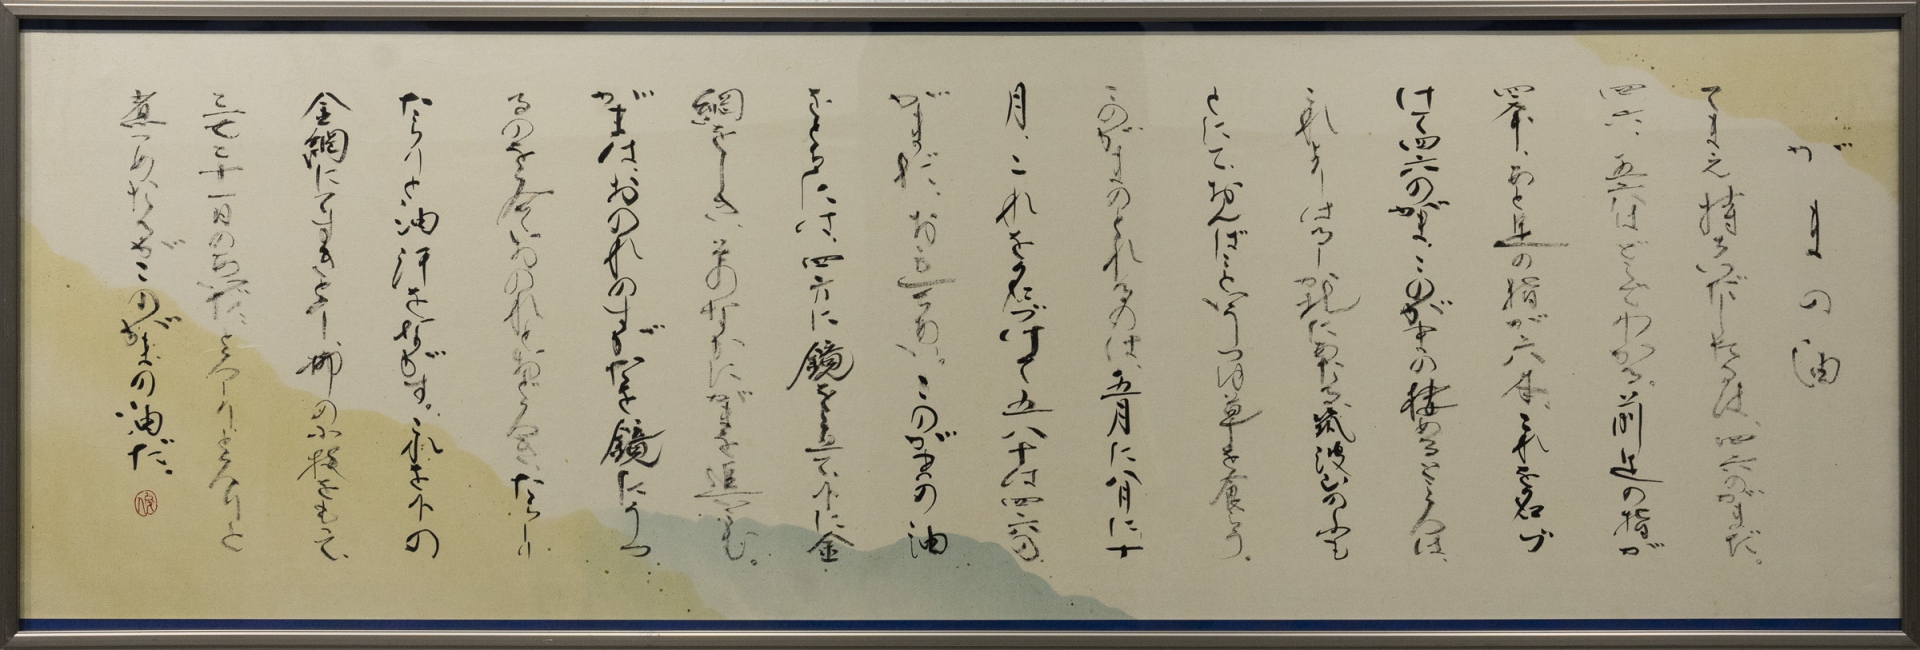 がまの油
てまえ持ちいだしたるは、四六のがまだ。
四六、五六はどこでわかる。前足の指が
四本、あと足の指が六本、これを名づ
けて四六のがま、このがまの棲めるところは、
これよりはるー北にあたる筑波山の
ふもとにて、おんばこという つゆ草を食らう。
このがまのとれるのは、五月に八月に十
月、これを名づけて五八十は四六の
がまだ、お立ちあい。このがまの油
をとるには、四方に鏡を立て、下に金
網をしき、そのなかにがまを追いこむ。
がまは、おのれのすがたが鏡にうつ
るのを見ておのれとおどろき、たらーり
たらりと油汗をながす。これを下の
金網にてすきとり、柳の小枝をもって、
三七二十一日のあいだ、とろーりとろりと
煮つめたるがこのがまの油だ。